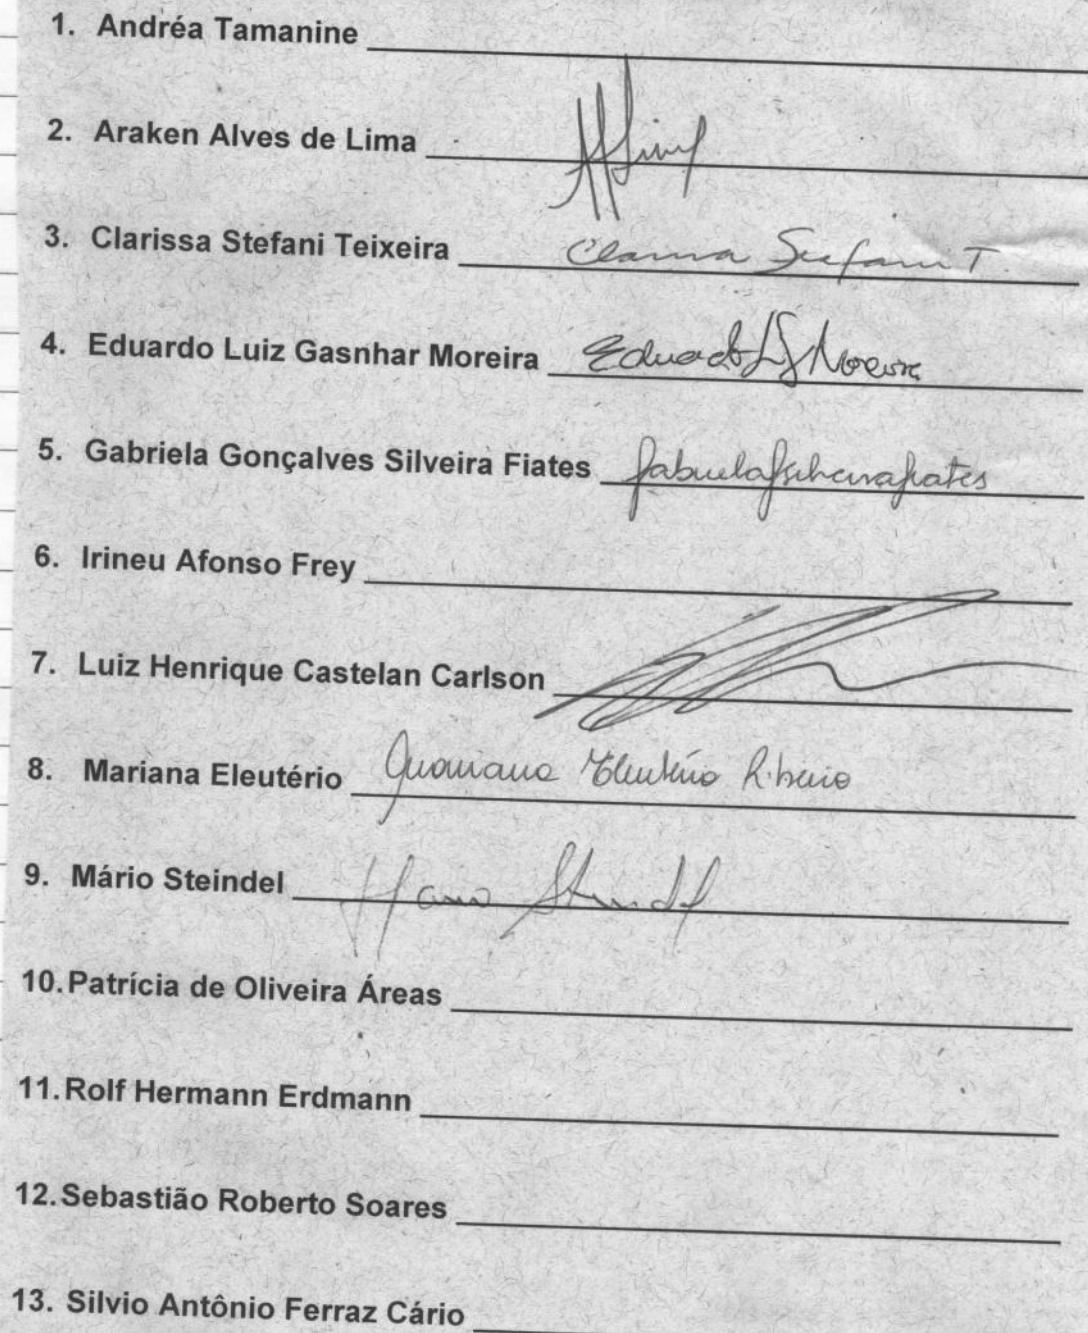 1. Andréa Tamanine
2. Araken Alves de Lima
3. Clarissa Stefani Teixeira Clarissa Stefani T.
4. Eduardo Luiz Gasnhar Moreira Eduardo Moreira
5. Gabriela Gonçalves Silveira Fiates Gabriela Silveira Fiates
6. Irineu Afonso Frey
7. Luiz Henrique Castelan Carlson
8. Mariana Eleutério Mariana Eleutério Ribeiro
9. Mário Steindel Mario Steindel
10. Patrícia de Oliveira Áreas
11. Rolf Hermann Erdmann
12. Sebastião Roberto Soares
13. Silvio Antônio Ferraz Cário